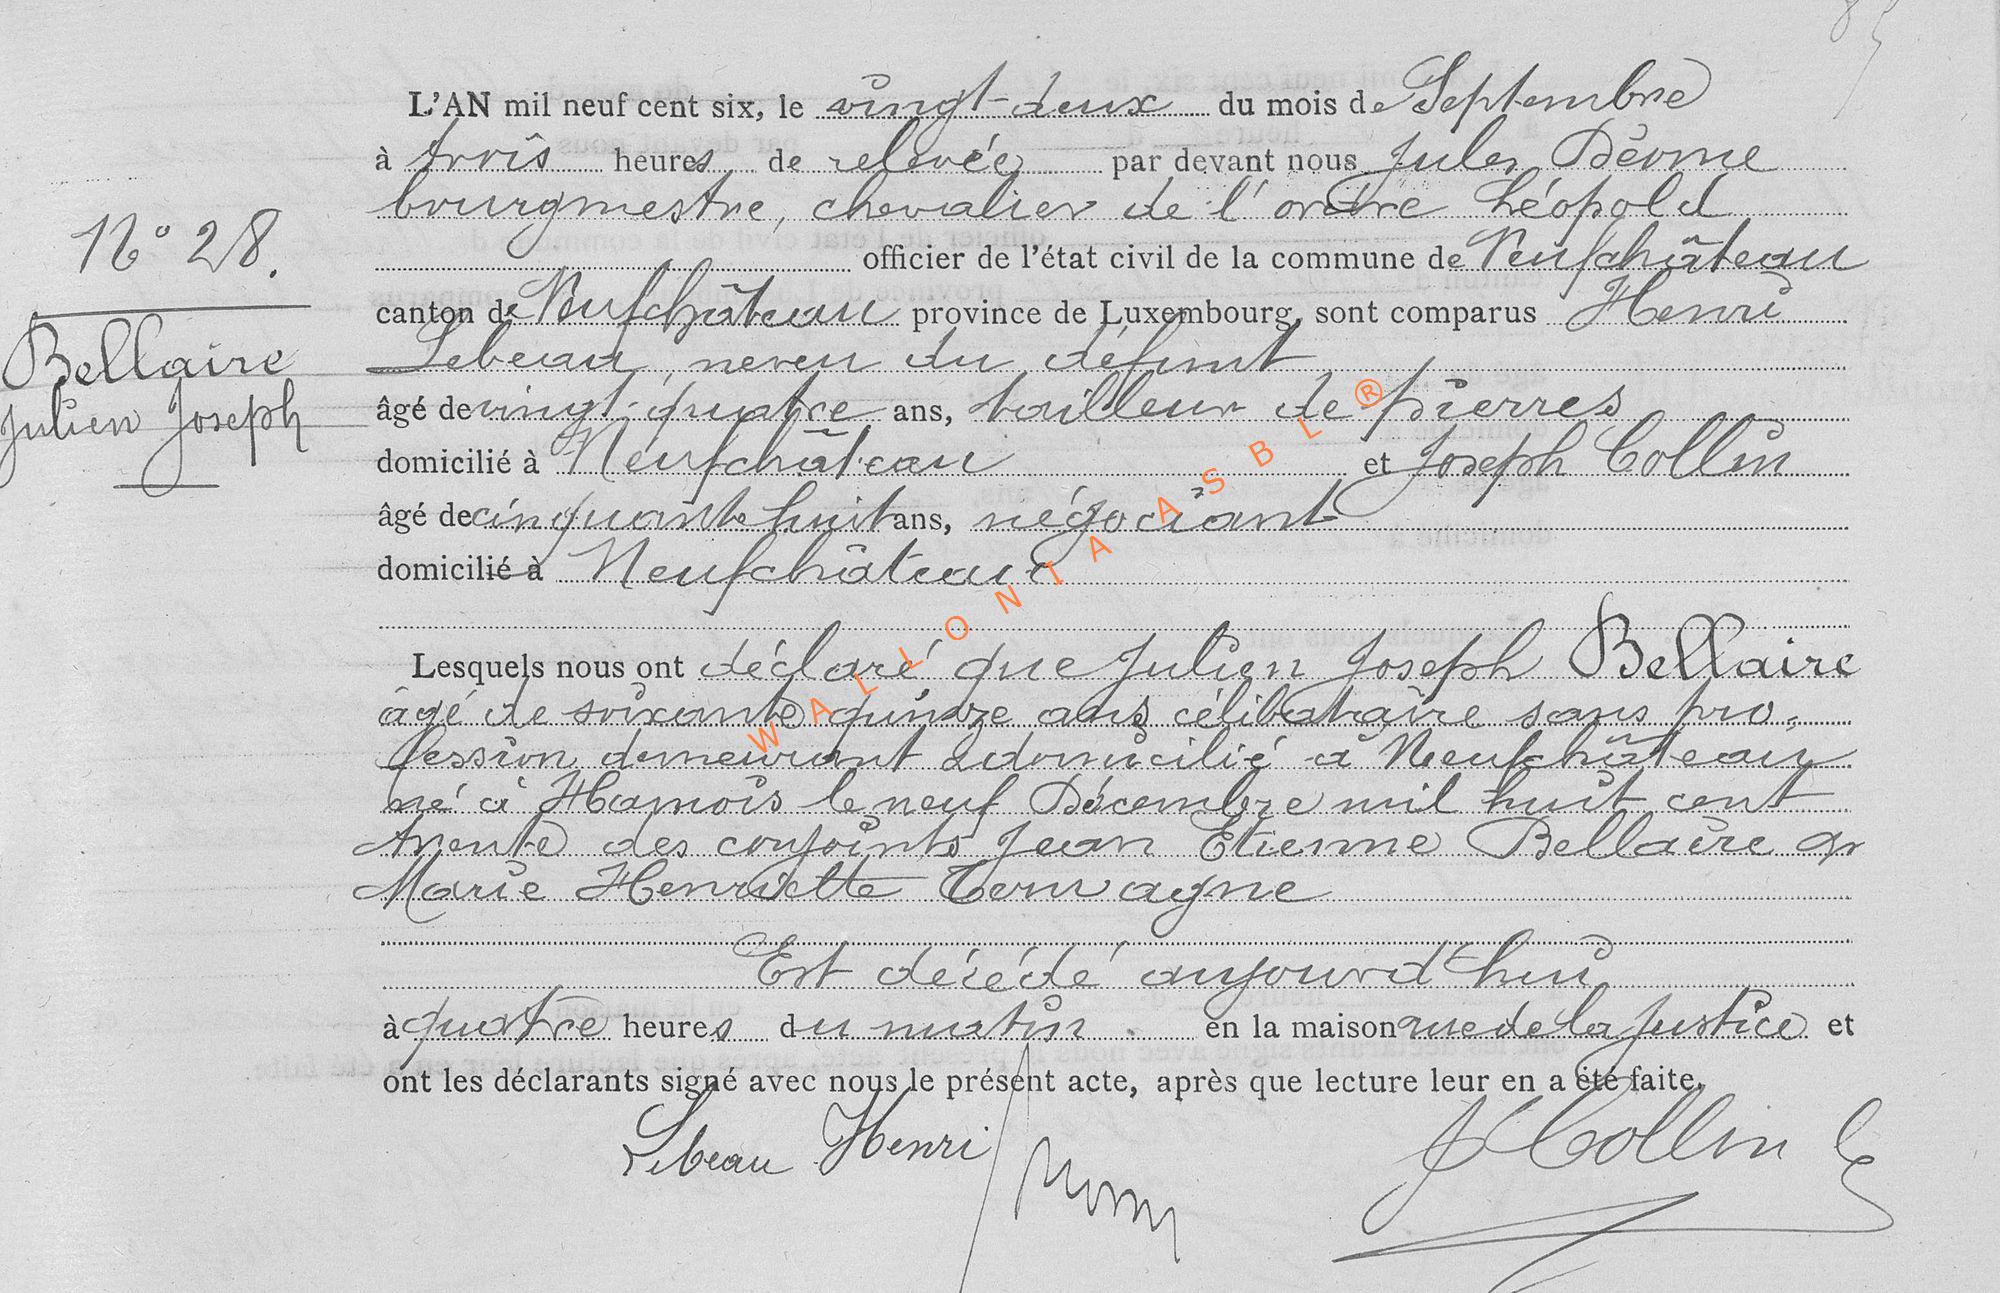 85
L'AN mil neuf cent six, le vingt-deux du mois de Septembre
à trois heures de relevée par devant nous Jules Dérome
bourgmestre, chevalier de l'ordre Léopold
officier de l'état civil de la commune de Neufchâteau
canton de Neufchâteau province de Luxembourg, sont comparus Henri
Lebeau, neveu du défunt
âgé de vingt-quatre ans, tailleur de pierres
domicilié à Neufchâteau et Joseph Collin
âgé de cinquante huit ans, négociant
domicilié à Neufchâteau
N° 28.
Bellaire
Julien Joseph
Lesquels nous ont déclaré que Julien Joseph Bellaire
âgé de soixante quinze ans célibataire sans pro-
fession demeurant & domicilié à Neufchâteau
né à Hamois le neuf Décembre mil huit cent
trente des conjoints Jean Etienne Bellaire &
Marie Henriette Terwagne
Est décédé aujourd'hui
à quatre heures du matin. en la maison rue de la Justice et
ont les déclarants signé avec nous le présent acte, après que lecture leur en a été faite.
Lebeau Henri
J Collin
WALLONIA ASBL ®